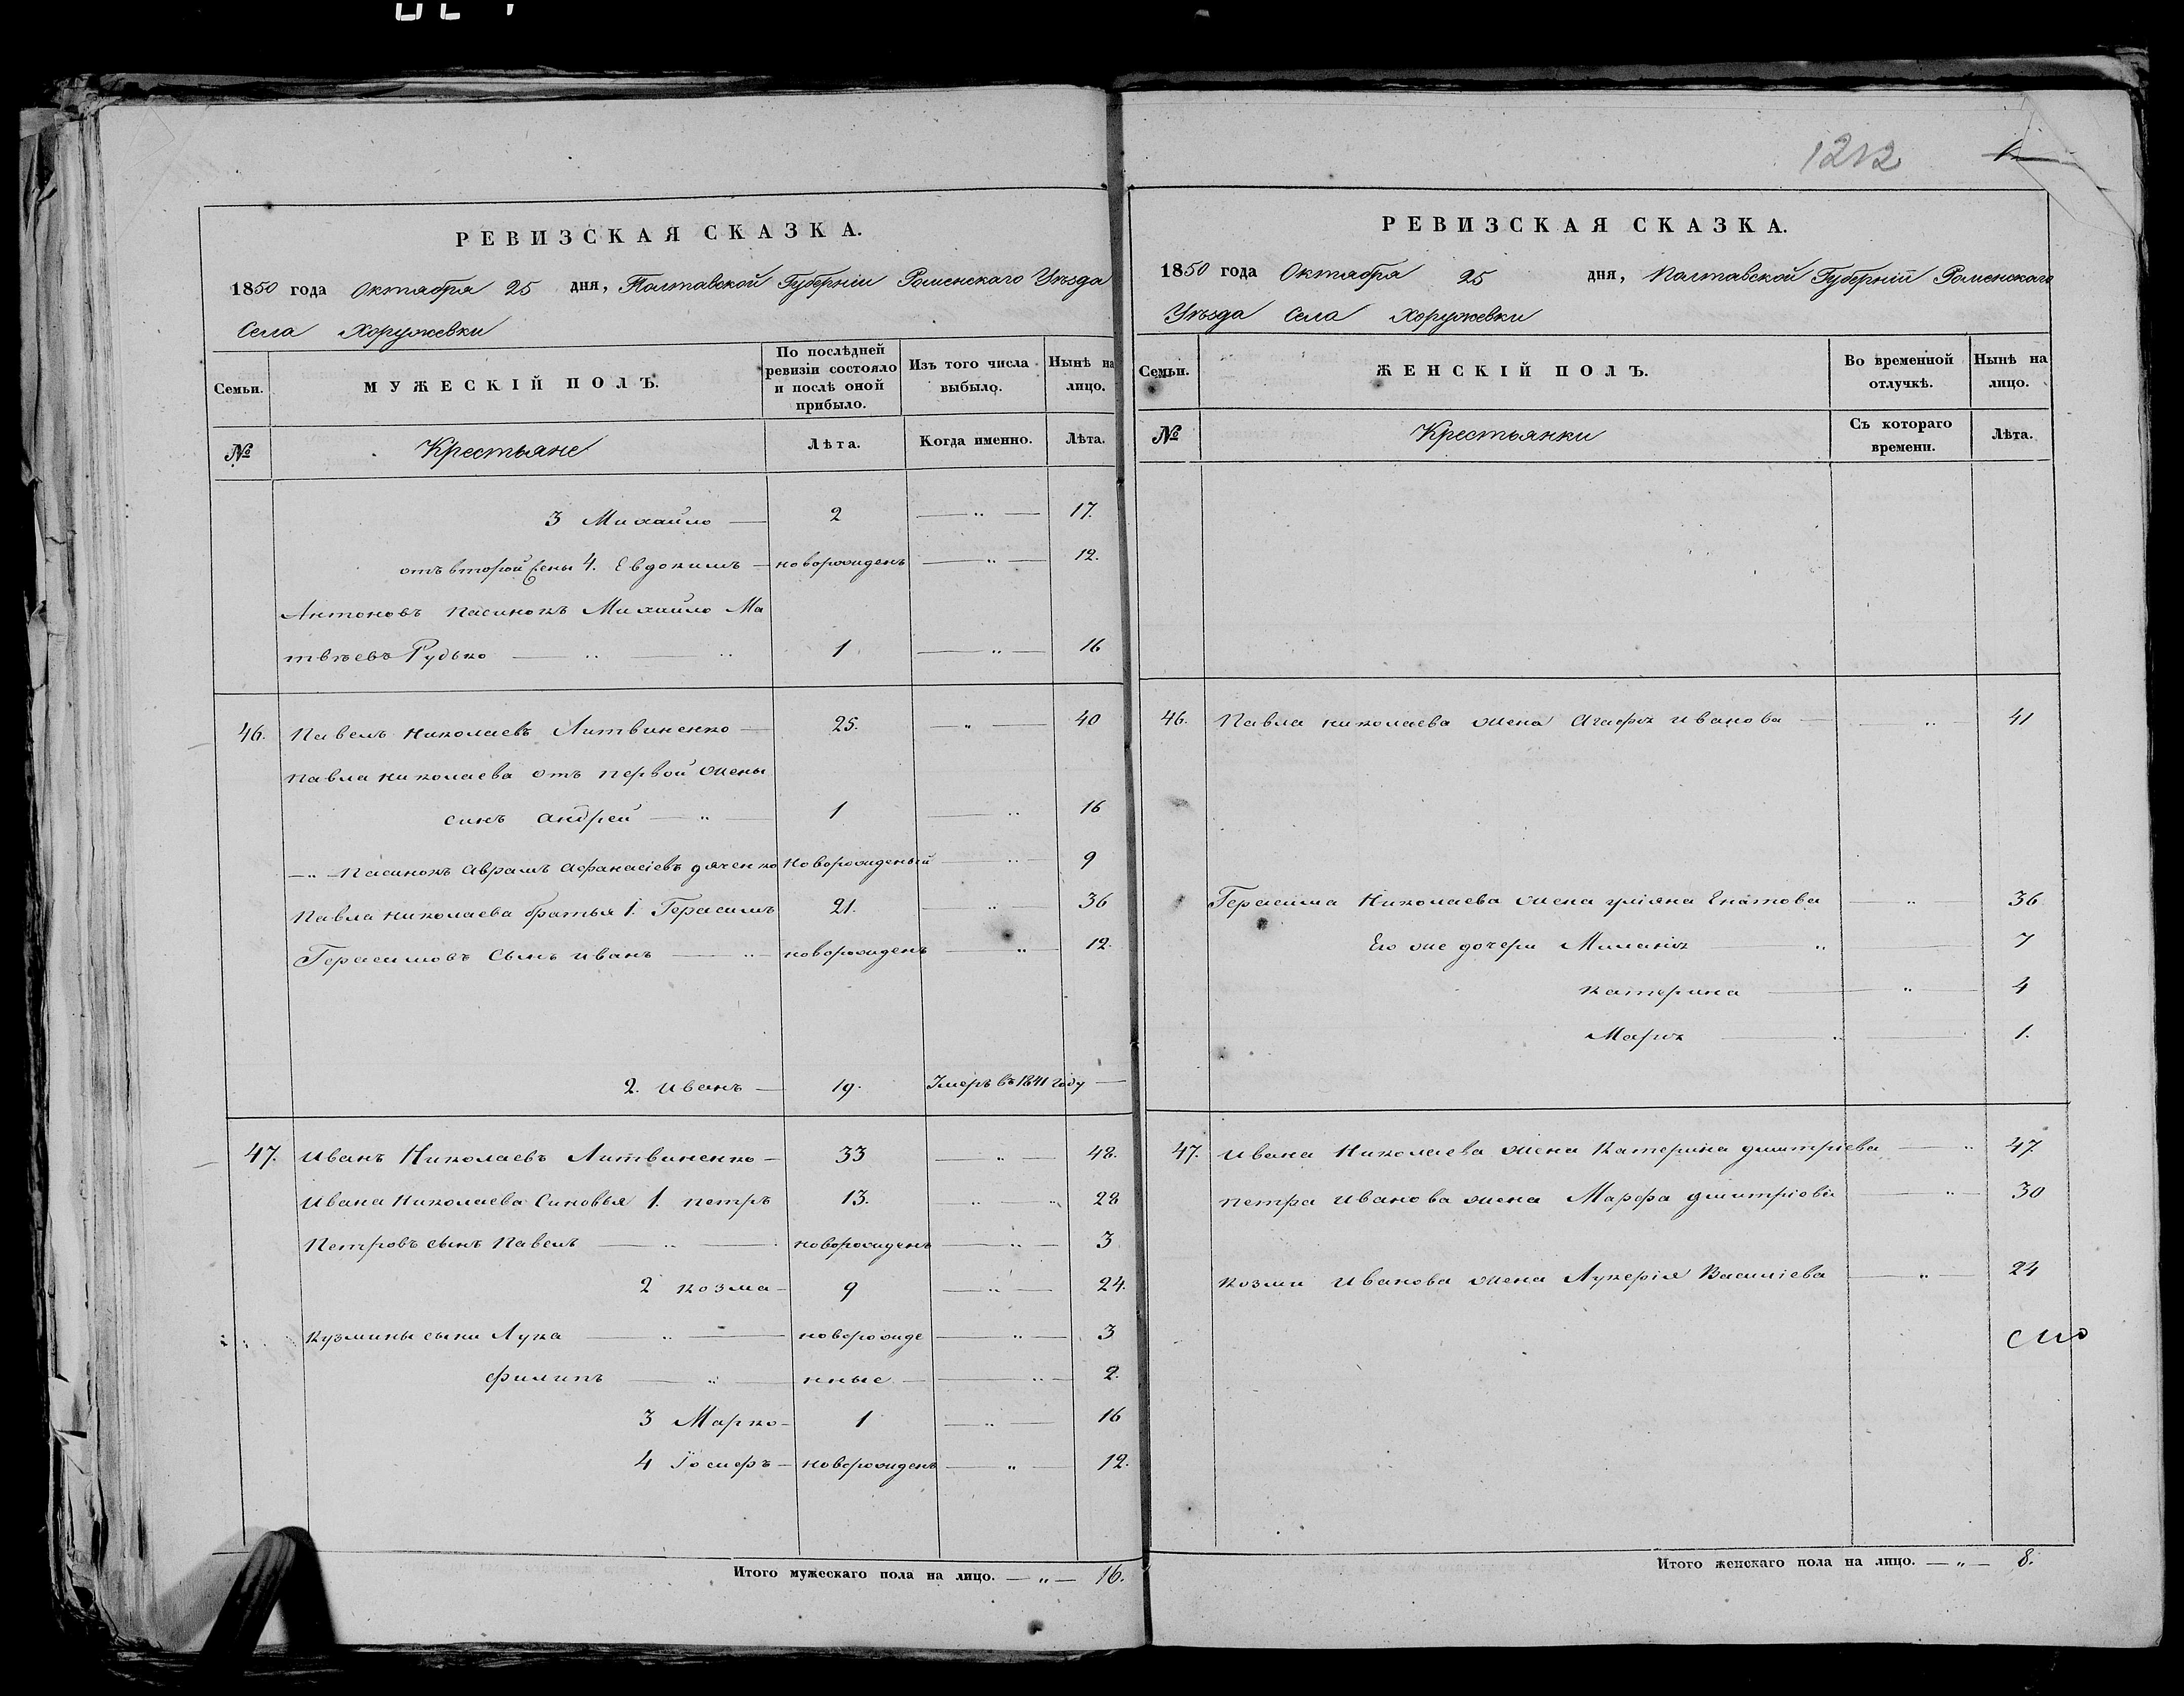 РЕВИЗСКАЯ СКАЗКА.
1850 года Октября 25 дня, Полтавской Губерніи Роменскаго Уѣзда
Села Хоружевки
Семьи.
МУЖЕСКІЙ ПОЛЪ.
По послѣдней
ревизіи состояло
и послѣ оной
прибыло.
Изъ того числа
выбыло.
Нынѣ на
лицо.
№
Крестьяне
Лѣта.
Когда именно.
Лѣта.
3 Михайло 2 17.
отъ второй жены 4. Евдокимъ новорожденъ 12.
Антоновъ пасинокъ Михайло Ма
твѣевъ Рудько 1 16
46. Павелъ Николаевъ Литвиненко 25. 40
Павла Николаева отъ первой жены
синъ Андрей 1 16
Пасинокъ Аврамъ Афанасіевъ дяченко Новорожденый 9
Павла Николаева братья 1. Герасимъ 21. 36
Герасимовъ Сынъ Иванъ новорожденъ 12.
2. Иванъ 19. Умеръ въ 1841 году
47. Иванъ Николаевъ Литвиненко 33 48.
Ивана Николаева Синовья 1. петръ 13. 28
Петровъ сынъ Павелъ новорожденъ 3
2 Козма 9 24.
Кузмины сыни Лука новорожде 3
филипъ нные 2.
3 Марко 1 16
4 Їосифъ новорожденъ 12.
Итого мужескаго пола на лицо. 16.
1212
РЕВИЗСКАЯ СКАЗКА.
1850 года Октября 25 дня, Полтавской Губерніи Роменскаго
Уѣзда Села Хоружевки
Семьи.
ЖЕНСКІЙ ПОЛЪ.
Во временной
отлучкѣ.
Нынѣ на
лицо.
№
Крестьянки
Съ котораго
времени.
Лѣта.
46. Павла николаева жена Агафія Иванова 41
Герасима Николаева жена уліяна Гнатова 36
Его же дочери Миланія 7
Катерина 4
Марія 1.
47. Ивана Николаева жена Катерина дмитріева 47
петра Иванова жена Марфа дмитріова 30
Козми Иванова жена Лукерія Василіева 24
Итого женскаго пола на лицо. 8.